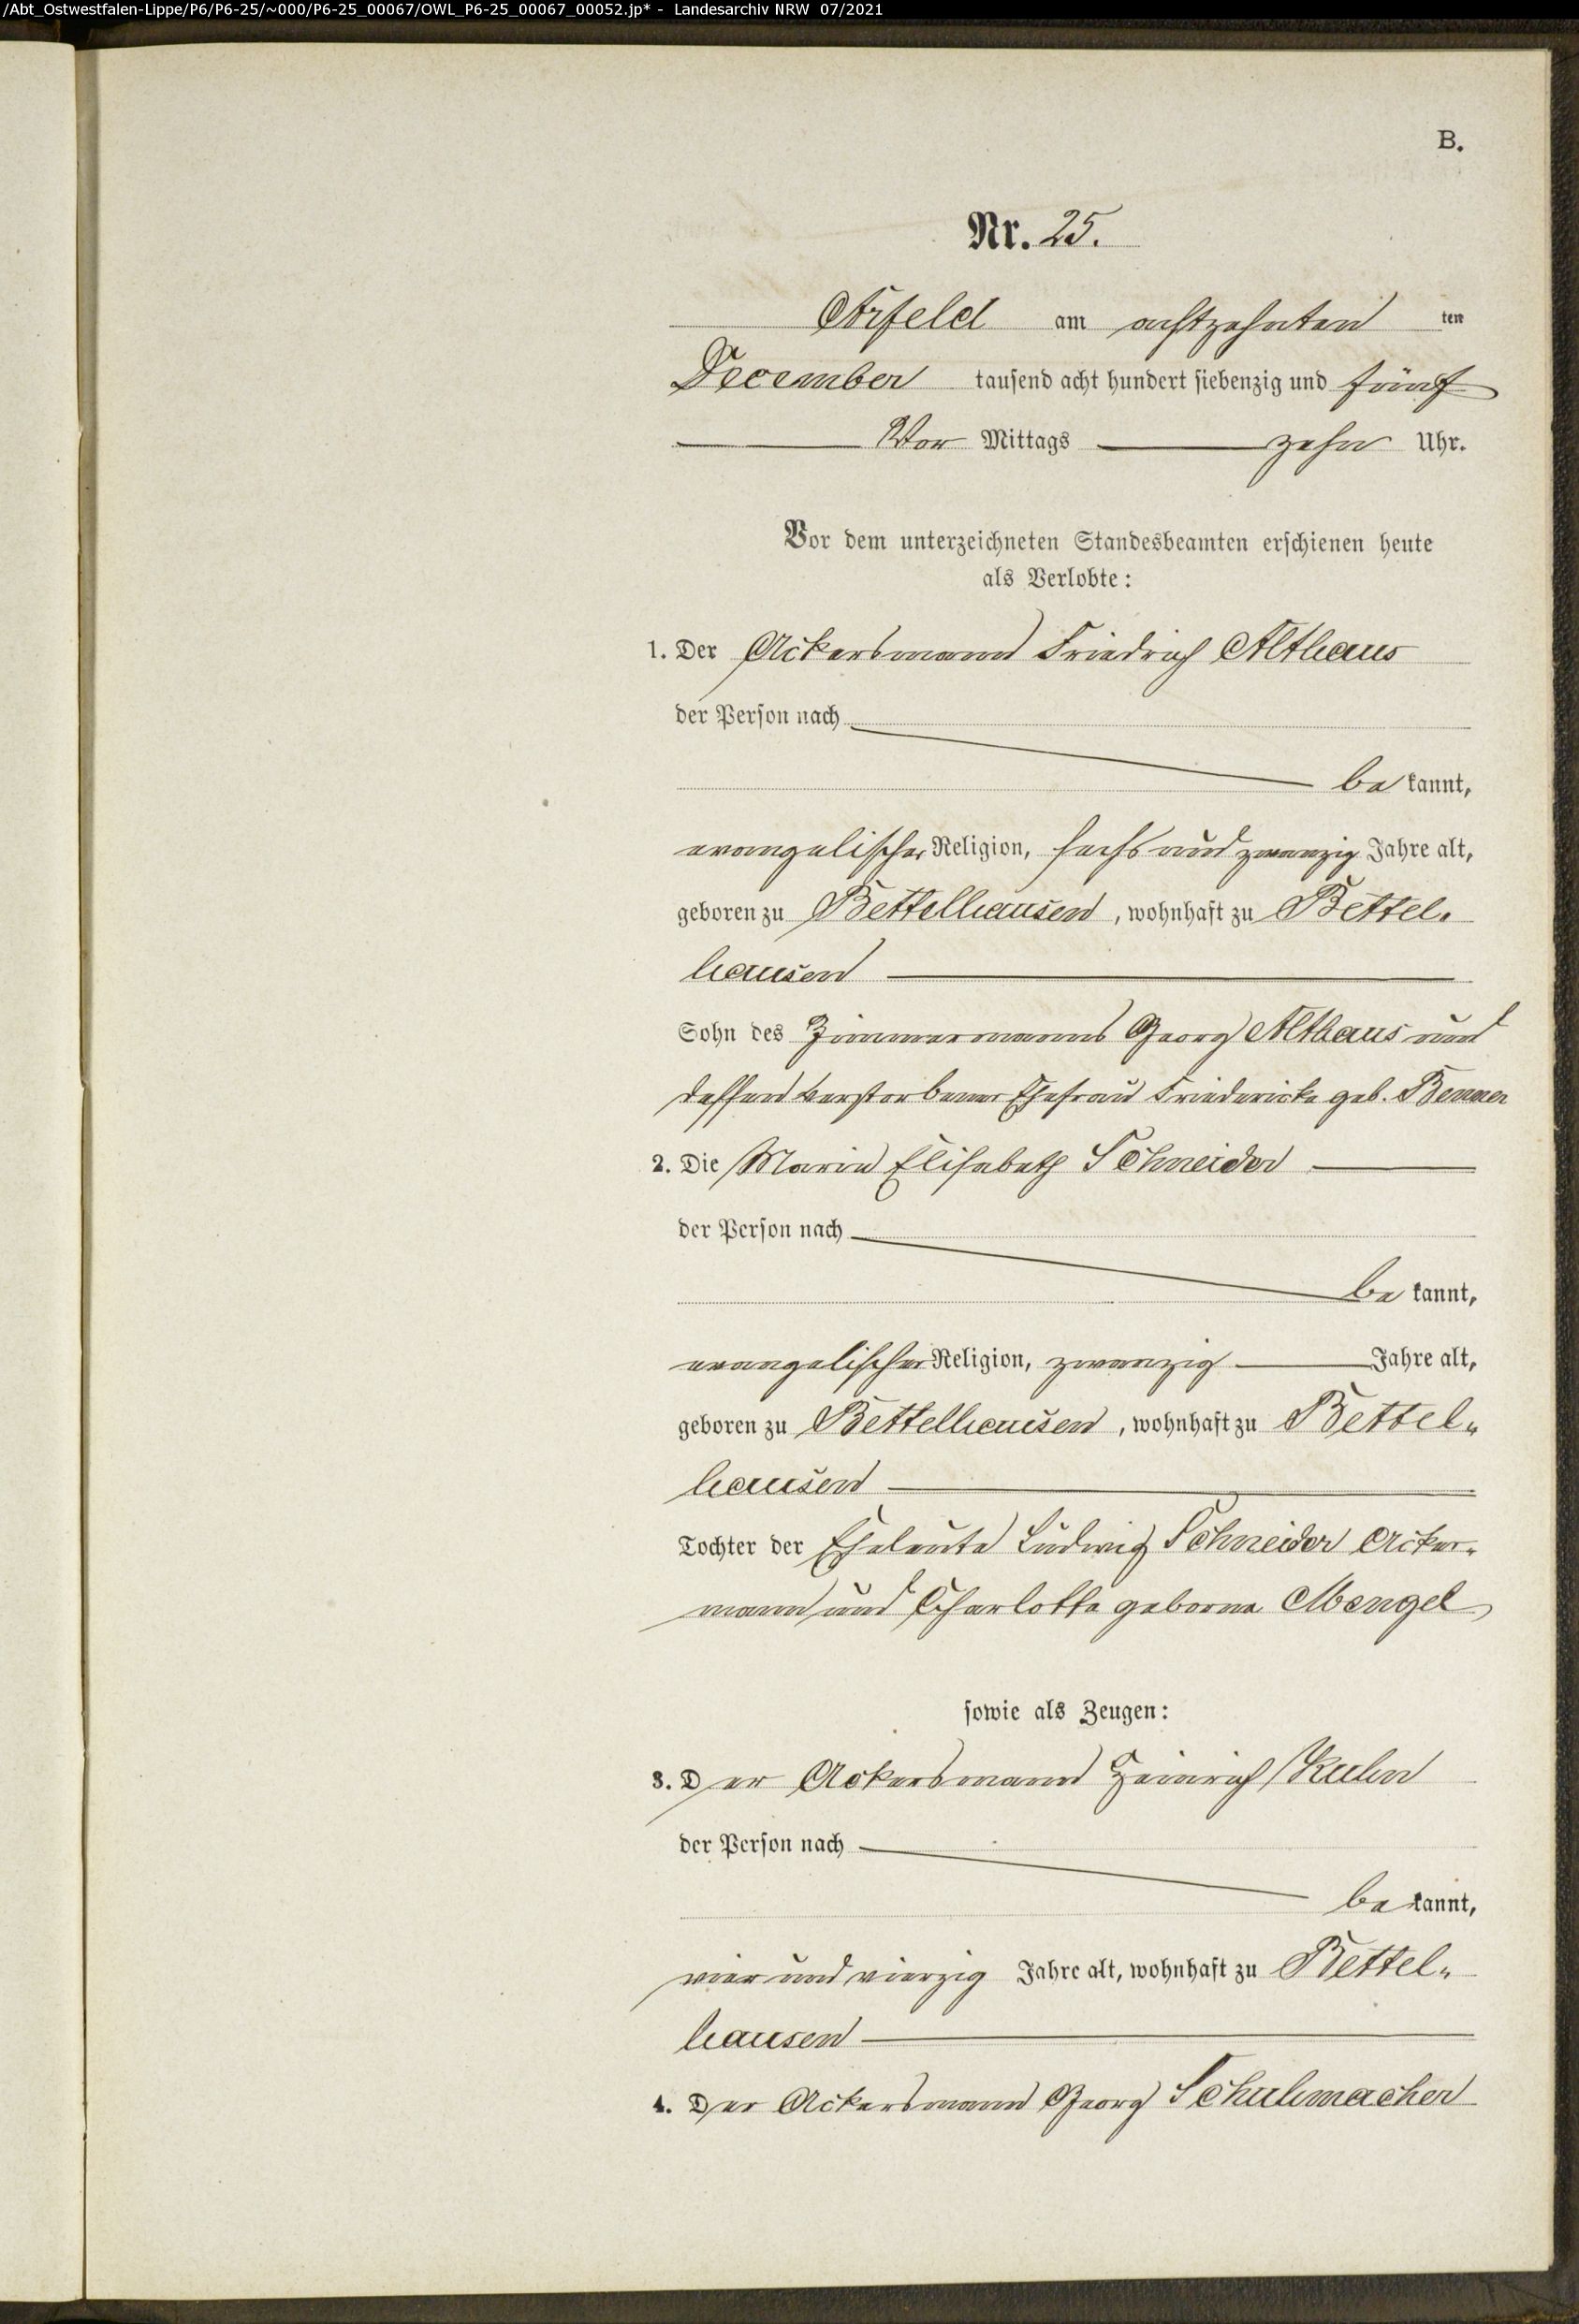 /Abt_Ostwestfalen-Lippe/P6/P6-25/~000/P6-25_00067/OWL_P6-25_00067_00052.jp* - Landesarchiv NRW 07/2021
B.
Nr. 25.
Arfeld am achtzehnten ten
December tausend acht hundert siebenzig und fünf
Vor Mittags zehn Uhr.
Vor dem unterzeichneten Standesbeamten erschienen heute
als Verlobte:
1. Der Ackersmann Friedrich Althaus
der Person nach
be kannt,
evangelischer Religion, sechs und zwanzig Jahre alt,
geboren zu Bettelhausen, wohnhaft zu Bettel-
hausen
Sohn des Zimmermanns Georg Althaus und
dessen verstorbener Ehefrau Friedericke geb. Benner
2. Die Maria Elisabeth Schneider
der Person nach
be kannt,
evangelischer Religion, zwanzig Jahre alt,
geboren zu Bettelhausen, wohnhaft zu Bettel-
hausen
Tochter der Eheleute Ludwig Schneider Acker-
mann und Charlotte geborne Mengel
sowie als Zeugen:
3. Der Ackersmann Heinrich Kuhn
der Person nach
be kannt,
vier und vierzig Jahre alt, wohnhaft zu Bettel-
hausen
4. Der Ackersmann Georg Schuhmacher